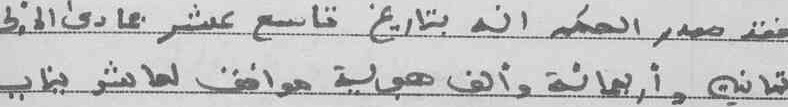 فقد صدر الحكم انه بتاريخ تاسع عشر جمادى الاولى
ثمانين وأربعمائة وألف هجرية موافق لعاشر يناير